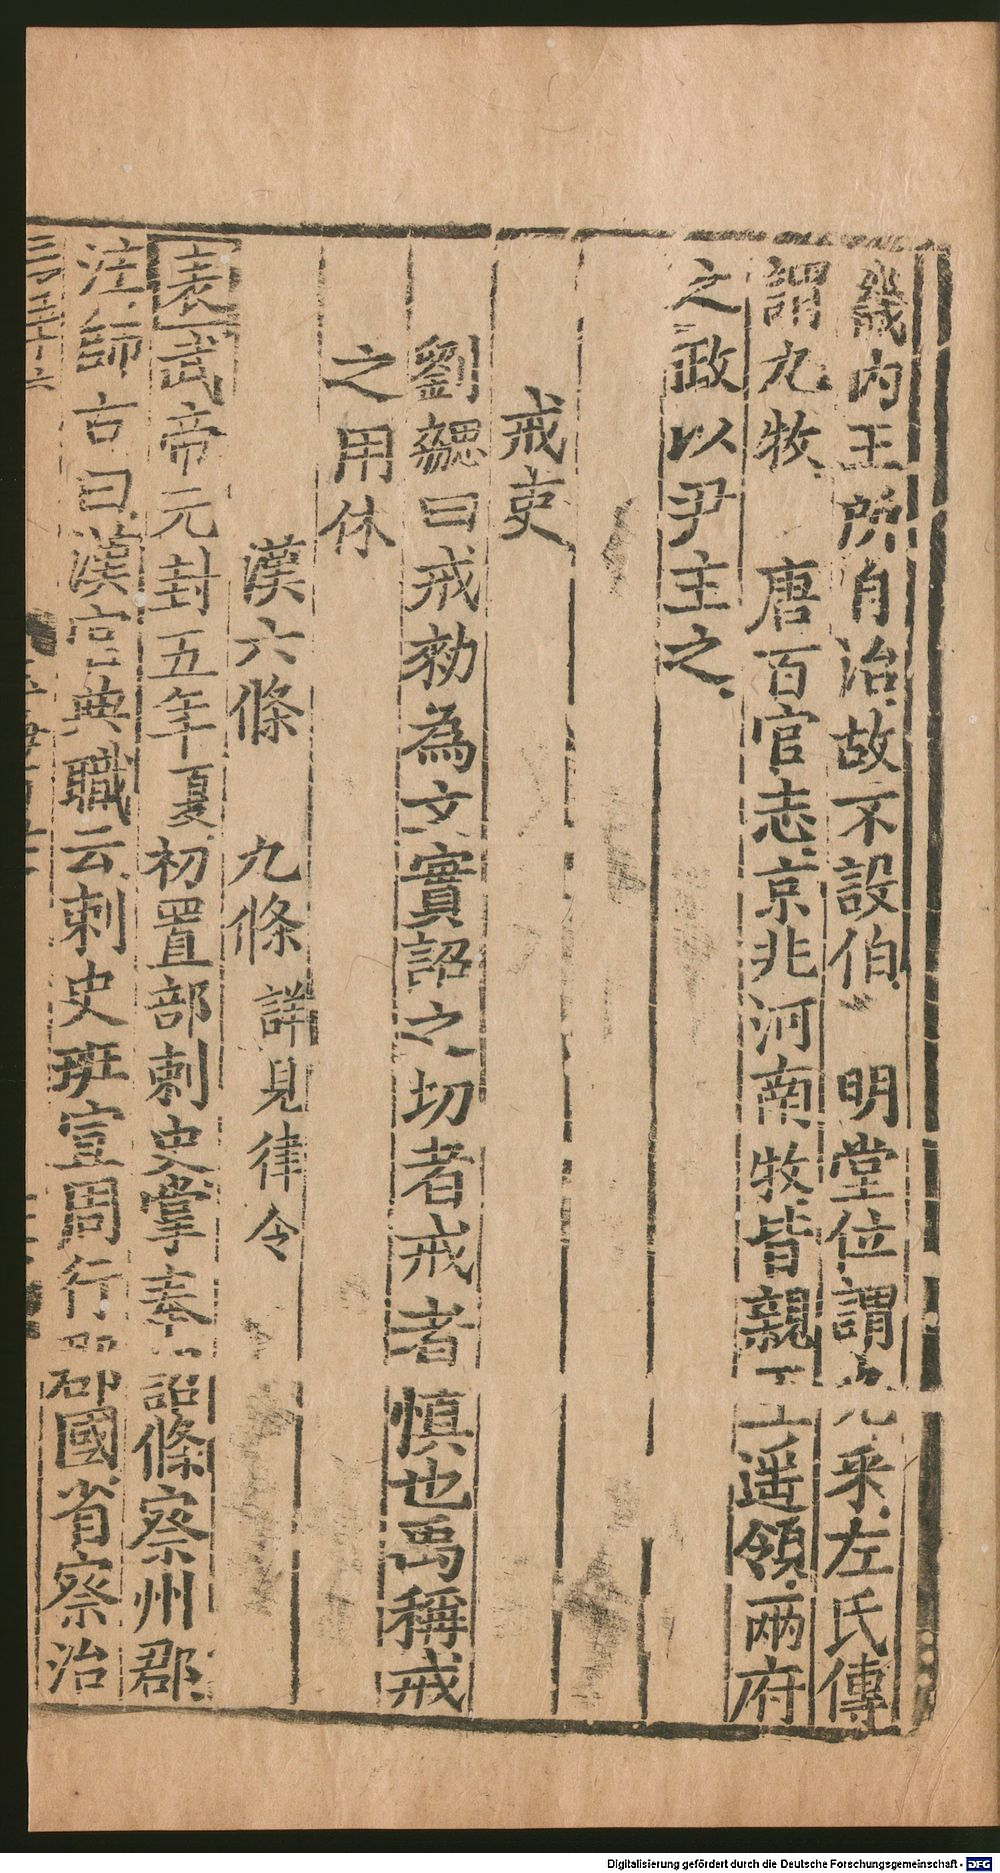 畿内王所自治故不設伯 明堂位謂 采左氏傳
謂九牧 唐百官志京兆河南牧皆親王遥領兩府
之政以尹主之
戒吏
劉勰曰戒勑為文實詔之切者戒者慎也禹稱戒
之用休
漢六條 九條 詳見律令
表武帝元封五年夏初置部刺史掌奉詔條察州郡
注師古曰漢官典職云刺史班宣周行郡國省察治
Digitalisierung gefördert durch die Deutsche Forschungsgemeinschaft - DFG